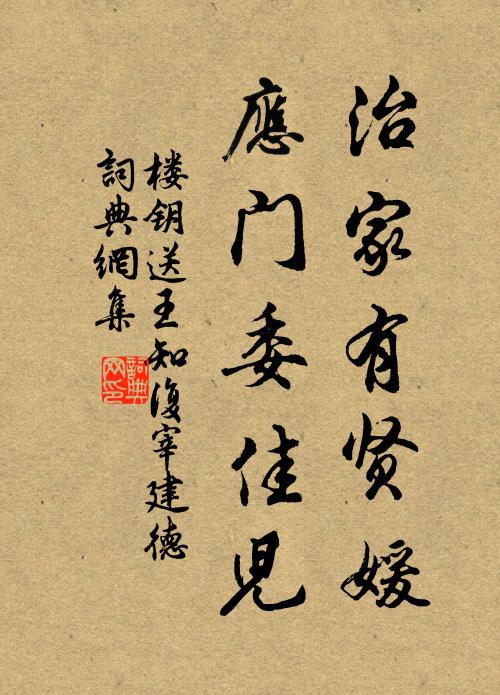 治家有贤媛
應门委佳兒
楼钥送王知復宰建德
詞典網集
詞典
网印